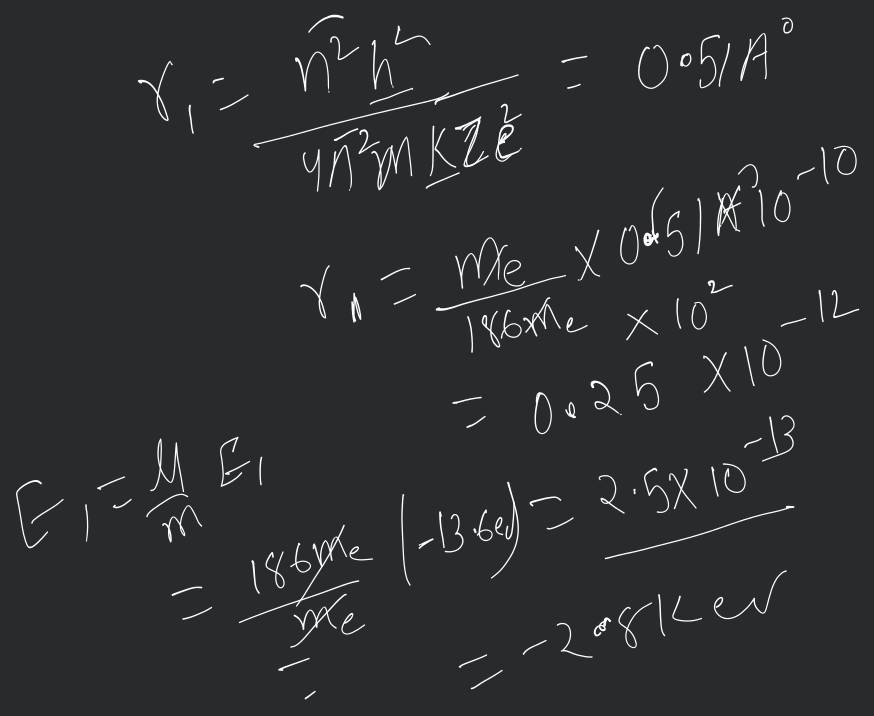 r₁ = n²h² / 4π²mKZe² = 0.51A°
r₁ = me / 186me × 0.51 × 10⁻¹⁰
× 10²
= 0.25 × 10⁻¹²
= 2.5 × 10⁻¹³
E₁ = μ/m E₁
= 186me / me (-13.6eV)
= = -2.8Kev